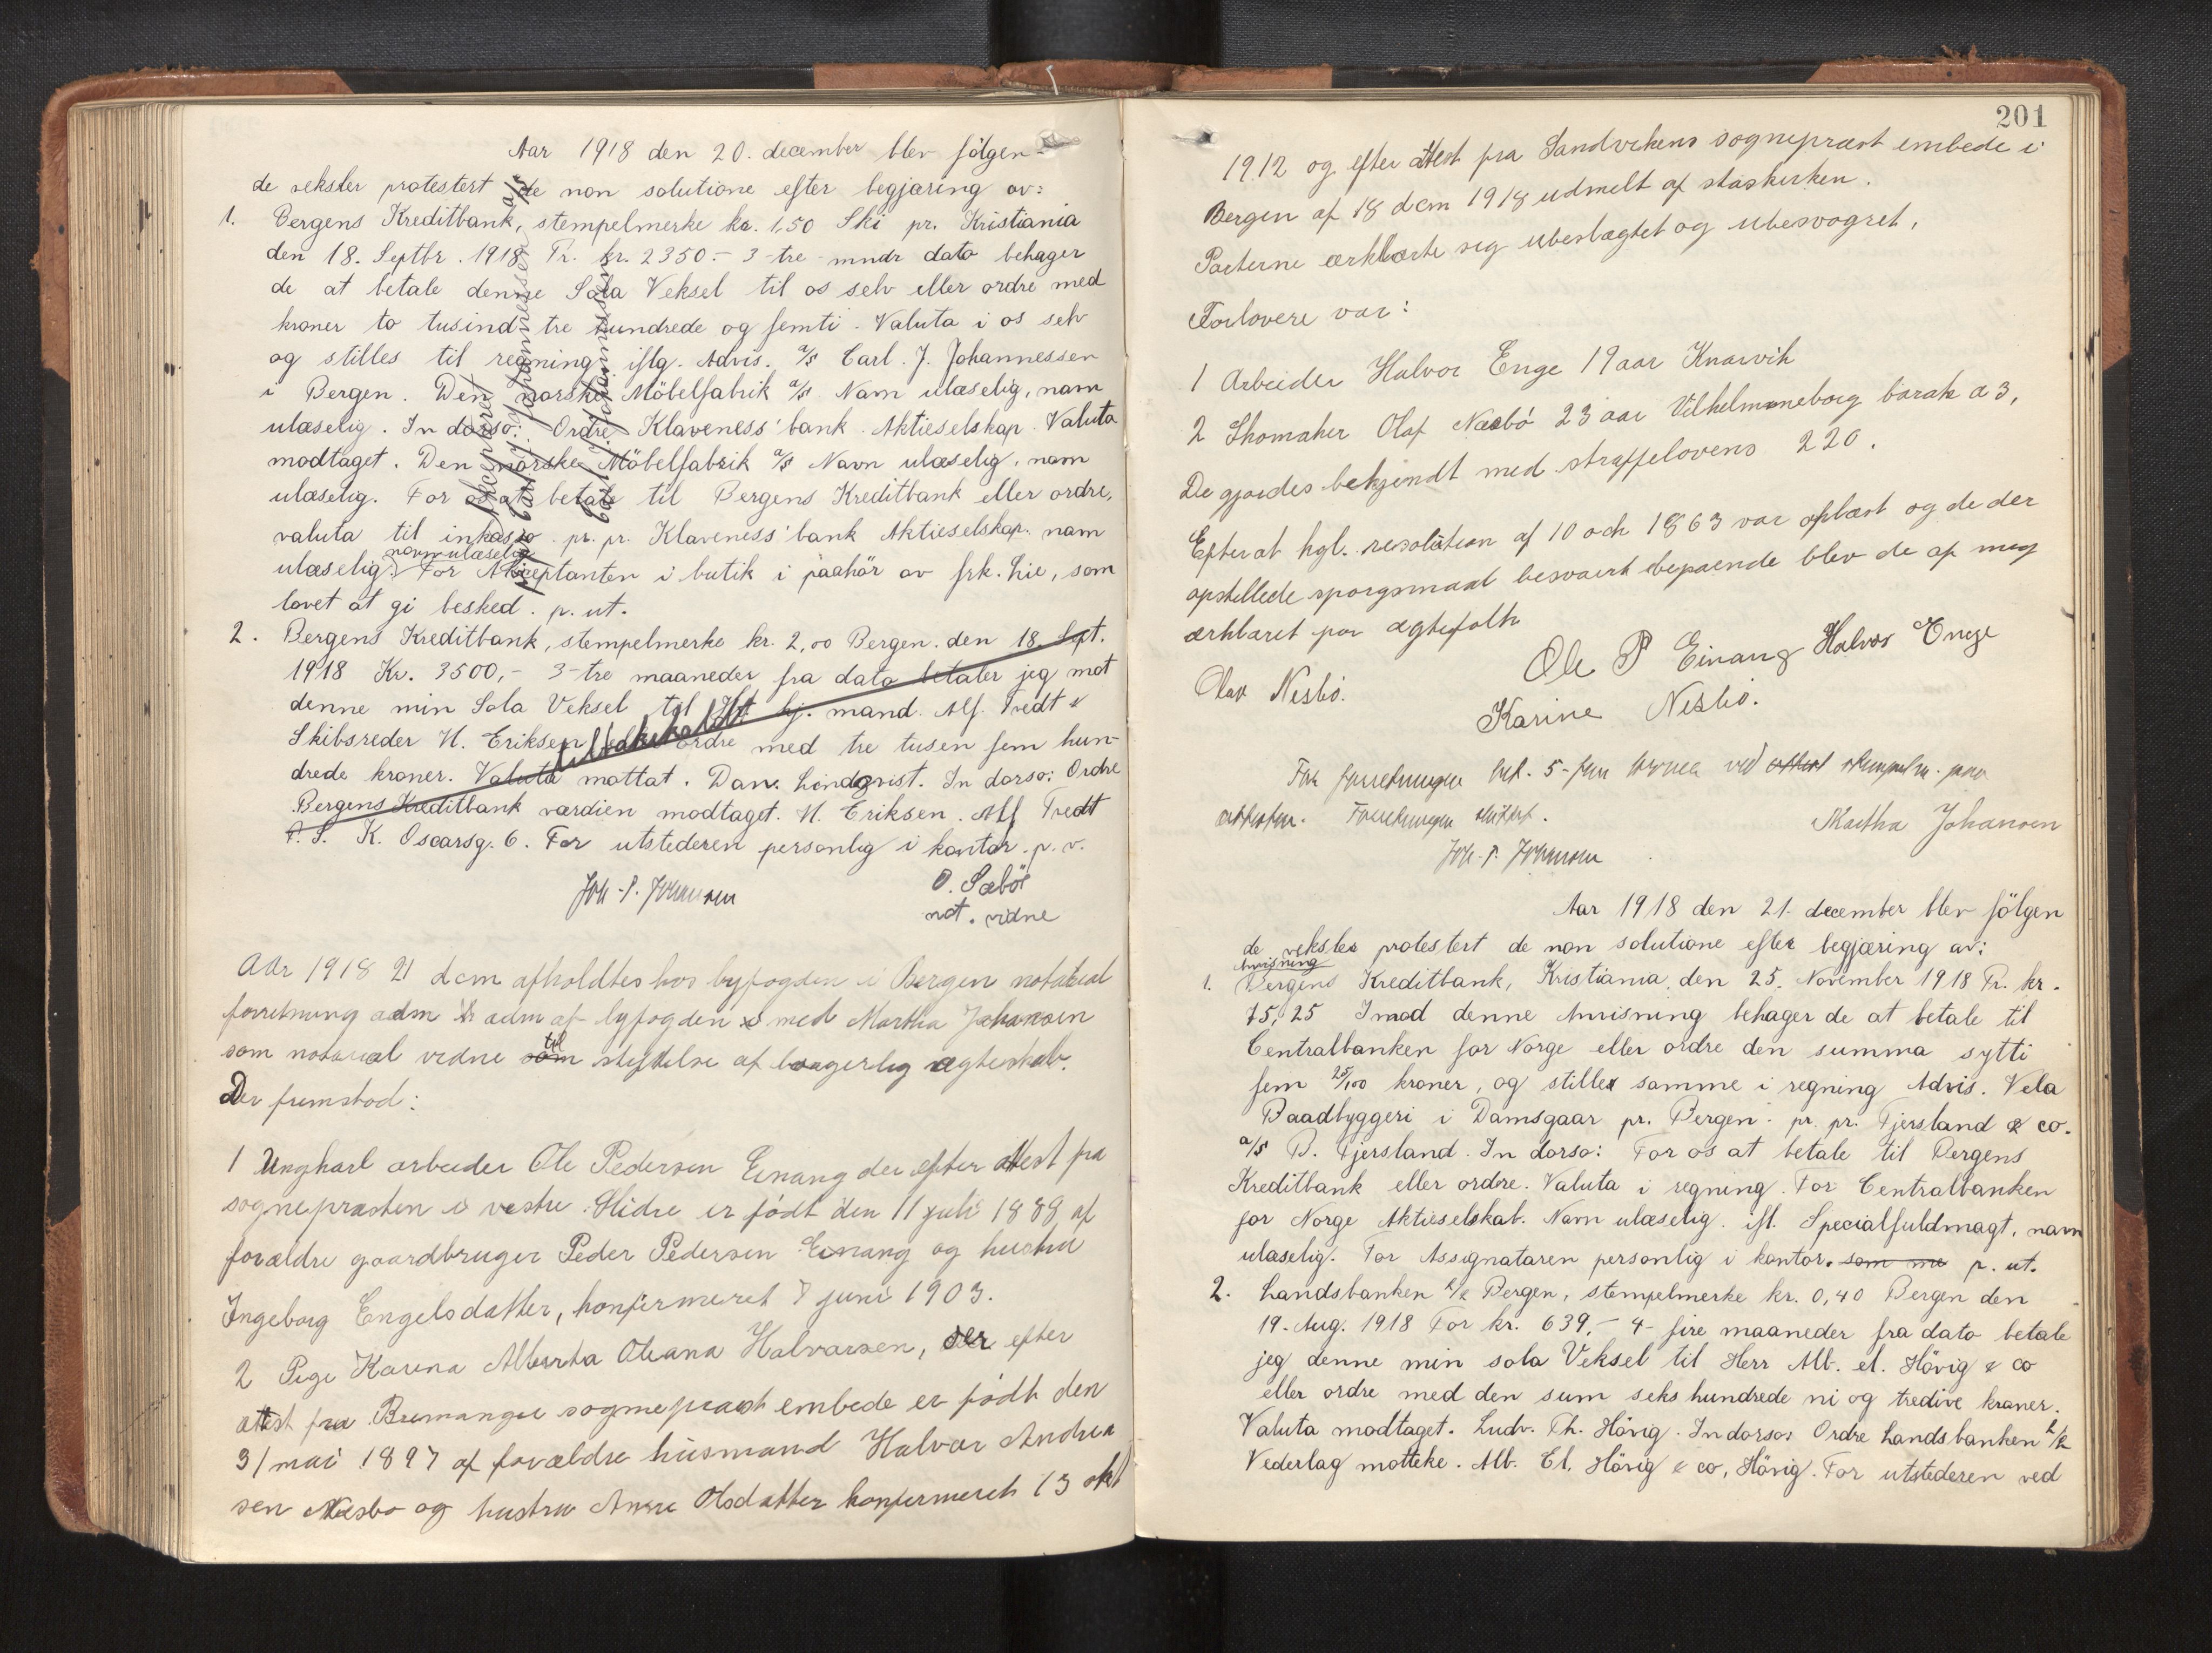 Aar 1918 den 20. december blev følgen-
de veksler protestert de non solutione efter begjæring av:
1. Bergens Kreditbank, stempelmerke kr. 1,50 Ski pr. Kristiania
den 18. Septbr. 1918 Pr. kr. 2350.- 3-tre-mndr dato behager
de at betale denne Sola Veksel til os selv eller ordre med
kroner to tusind tre hundrede og femti. Valuta i os selv
og stilles til regning iflg. Advis. A/S Carl. J. Johannessen
i Bergen. Den norske Möbelfabrik A/S Navn ulæselig, navn
ulæselig. In dorso: Ordre Klaveness' bank Aktieselskap. Valuta
modtaget. Den norske Möbelfabrik A/S Navn ulæselig, navn
ulæselig. For os at betale til Bergens Kreditbank eller ordre,
valuta til inkasso pr. pr. Klaveness' bank Aktieselskap. navn
navn ulæselig
ulæselig. For Akceptanten i butik i paahör av frk. Lie, som
lovet at gi besked. p. ut.
Akcepteres
Carl J. Johannessen A/S
Carl J. Johannessen
2. Bergens Kreditbank, stempelmerke kr. 2,00 Bergen. den 18. Sept.
1918 Kr. 3500,- 3-tre maaneder fra dato betaler jeg mot
denne min Sola Veksel til Hr. kj. mand. Alf. Tvedt &
Skibsreder N. Eriksen eller ordre med tre tusen fem hun-
drede kroner. Valuta mottat. Dan. Lindqvist. In dorso: Ordre
Bergens Kreditbank værdien modtaget. N. Eriksen. Alf Tvedt
P. S. K. Oscarsg. 6. For utstederen personlig i kontor. p. v.
tilbakekaldt
Joh. P. Johansen
O. Sæbö
not. vidne
Aar 1918 21 dcm afholdtes hos byfogden i Bergen notarial
forretning adm tr adm af byfogden med Martha Johansen
som notarial vidne som til stiftelse af borgerlig ægteskab.
Der fremstod:
1 Ungkarl arbeider Ole Pedersen Einang der efter attest fra
sognepræsten i vestre Slidre er født den 11 juli 1889 af
forældre gaardbruger Peder Pedersen Einang og hustru
Ingeborg Engelsdatter, konfirmeret 7 juni 1903.
2 Pige Karina Alberta Oleana Halvorsen, der efter
attest fra Bremanger sognepræst embede er født den
31 mai 1897 af forældre husmand Halvor Andrea
sen Næsbø og hustru Anne Olsdatter konfirmeret 13 okt
201
1912 og efter attest fra Sandvikens sognepræst embede i
Bergen af 18 dcm 1918 udmelt af staskirken.
Parterne erklærte sig ubeslægtet og ubesvogret,
Forlovere var:
1 Arbeider Halvor Enge 19 aar Knarvik
2 Skomaker Olaf Næsbö 23 aar Vilhelmineborg barak a 3,
De gjordes bekjendt med straffelovens 220.
Efterat kgl. resolution af 10 och 1863 var oplæst og de der
opstillede spørgsmaal besvaret bepaende blev de af meg
erklæret for ægtefolk
Ole P Einang Halvor Enge
Olav Nesbö.
Karine Nesbö.
For forretningen bet. 5-fem kroner ved stempelm. paa
attesten. Forretningen sluttet.
Martha Johansen
Joh. P. Johansen
Aar 1918 den 21. december blev følgen
de veksler protestert de non solutione efter begjæring av:
Anvisning
1. Bergens Kreditbank, Kristiania, den 25. November 1918 Pr. kr.
75,25 Imod denne Anvisning behager de at betale til
Centralbanken for Norge eller ordre den summa sytti
fem 25/100 kroner, og stiller samme i regning Advis. Vela
Baadbyggeri i Damsgaar pr. Bergen. pr. pr. Fjersland & co.
A/S B. Fjersland. In dorso: For os at betale til Bergens
Kreditbank eller ordre. Valuta i regning. For Centralbanken
for Norge Aktieselskab. Navn ulæselig. ifl. Specialfuldmagt, navn
ulæselig. For Assignataren personlig i kontor. som me p. ut.
2. Landsbanken A/S Bergen, stempelmerke kr. 0,40 Bergen den
19. Aug. 1918 For kr. 639,- 4- fire maaneder fra dato betale
jeg denne min sola Veksel til Herr Alb. el. Hövig & co
eller ordre med den sum seks hundrede ni og tredive kroner.
Valuta modtaget. Ludv. Th. Hövig. In dorso: Ordre Landsbanken A/S
Vederlag motteke. Alb. El. Hövig & co, Hövig. For utstederen ved